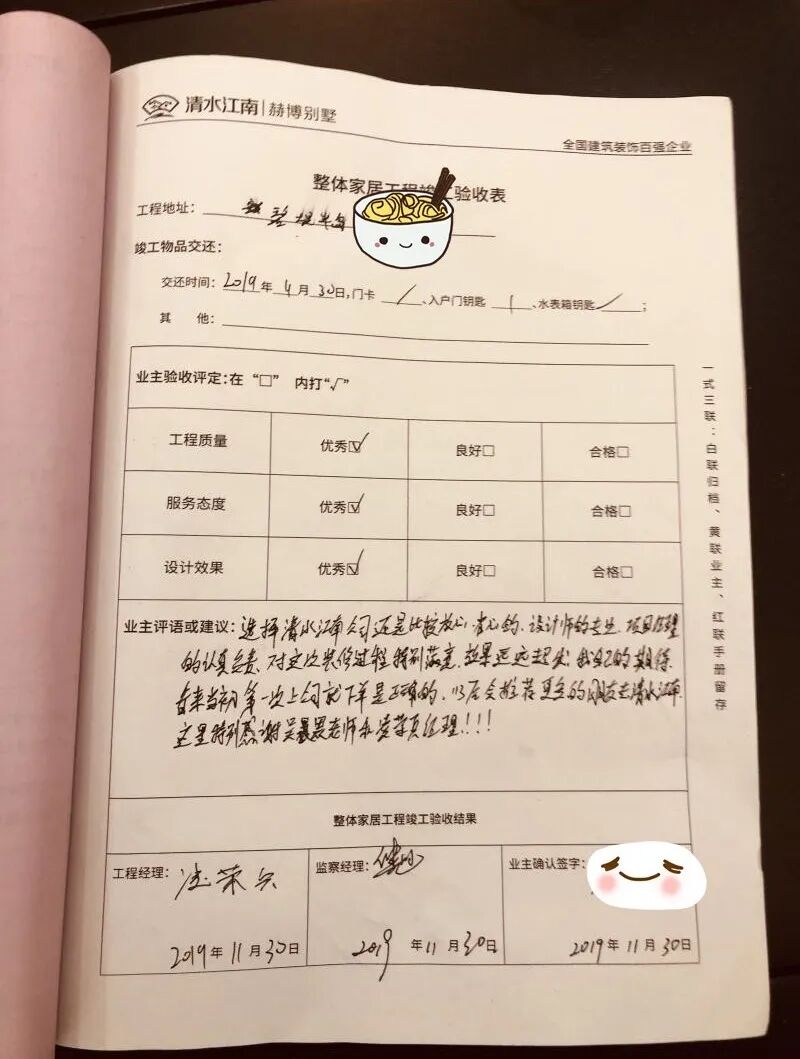 清水江南|赫博别墅
全国建筑装饰百强企业
整体家居工程竣工验收表
工程地址：
竣工物品交还：
交还时间：2019年4月30日,门卡 / 、入户门钥匙 1 、水表箱钥匙 / ；
其 他：
业主验收评定：在“□” 内打“√”
工程质量 优秀☑ 良好□ 合格□
服务态度 优秀☑ 良好□ 合格□
设计效果 优秀☑ 良好□ 合格□
业主评语或建议：选择清水江南公司还是比较放心、省心的、设计师的专业、项目经理
的认真负责、对这次装修过程特别满意，效果远远超出我自己的期待、
看来当初第一次上公司就下单是正确的，以后会推荐更多的朋友去清水江南
这里特别感谢吴 老师和 荣 经理！！！
整体家居工程竣工验收结果
工程经理： 荣兵
监察经理：
业主确认签字：
2019年11月30日
2019年11月30日
2019年11月30日
一式三联：白联归档、黄联业主、红联手册留存